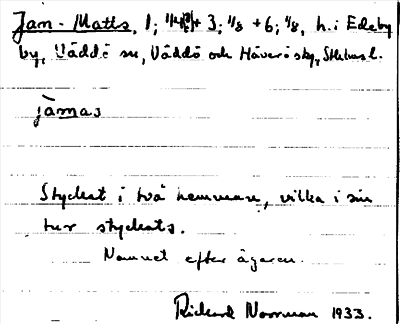 Jan-Matts, 1; + 3; 1/8 + 6; 1/8, h. i Edeby
by, Väddö sn, Väddö och Häverö skg, Sthlms l.
järnas
Styckat i två hemman, vilka i sin
tur styckats.
Namnet efter ägaren.
Rickard Norrman 1933.